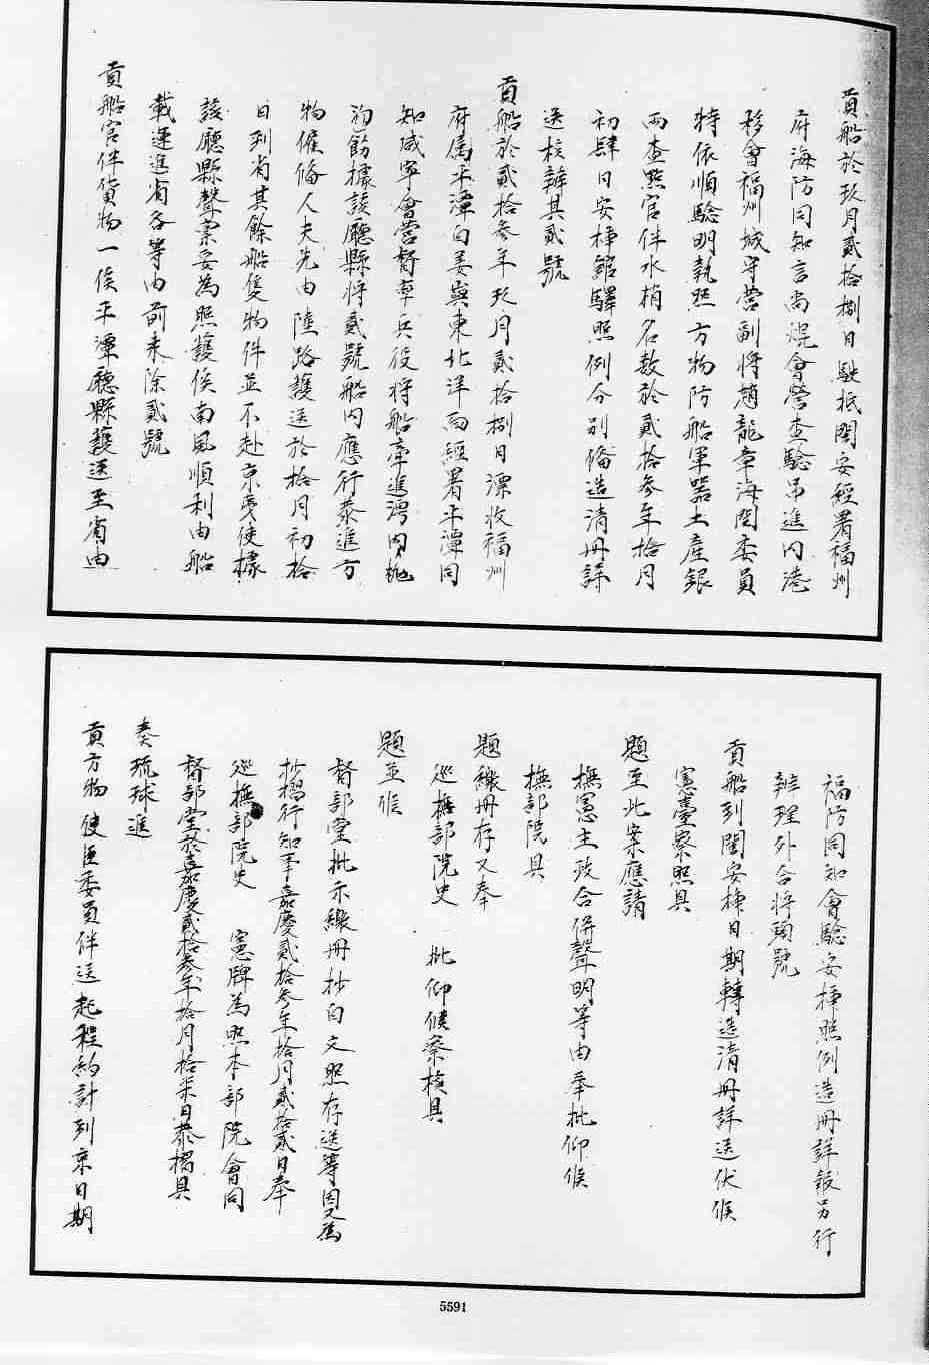 貢船於玖月貳拾捌日駛抵閩安經署福州
府海防同知言尚焜會營查驗吊進內港
移會福州城守營副將趙龍章海關委員
特依順驗明執照方物防船軍器土產銀
兩查點官伴水梢名數於貳拾參年拾月
初肆日安揷館驛照例分別備造清冊詳
送核辦其貳號
貢船於貳拾參年玖月貳拾捌日漂收福州
府属平潭白姜嶼東北洋面經署平潭同
知咸寧會營督率兵役將船牽進灣內拋
泊飭據該廳縣將貳號船內應行恭進方
物僱備人夫先由陸路護送於拾月初拾
日到省其餘船隻物件並不赴京夷使據
該廳縣聲稟妥為照護俟南風順利由船
載運進省各等由前來除貳號
貢船官伴貨物一俟平潭廳縣護送至省由
福防同知會驗安揷照例造冊詳報另行
辨理外合將頭號
貢船到閩安揷日期轉造清冊詳送伏候
憲臺察照具
題至此案應請
撫憲主政合併聲明等由奉批仰候
撫部院具
題繳冊存又奉
巡撫部院史 批仰候察核具
題並候
督部堂批示繳冊抄白文照存送等因又為
抄摺行知事嘉慶貳拾參年拾月貳拾貳日奉
巡撫部院史 憲牌為照本部院會同
督部堂於嘉慶貳拾參年拾月拾柒日恭摺具
奏琉球進
貢方物使臣委員伴送起程約計到京日期